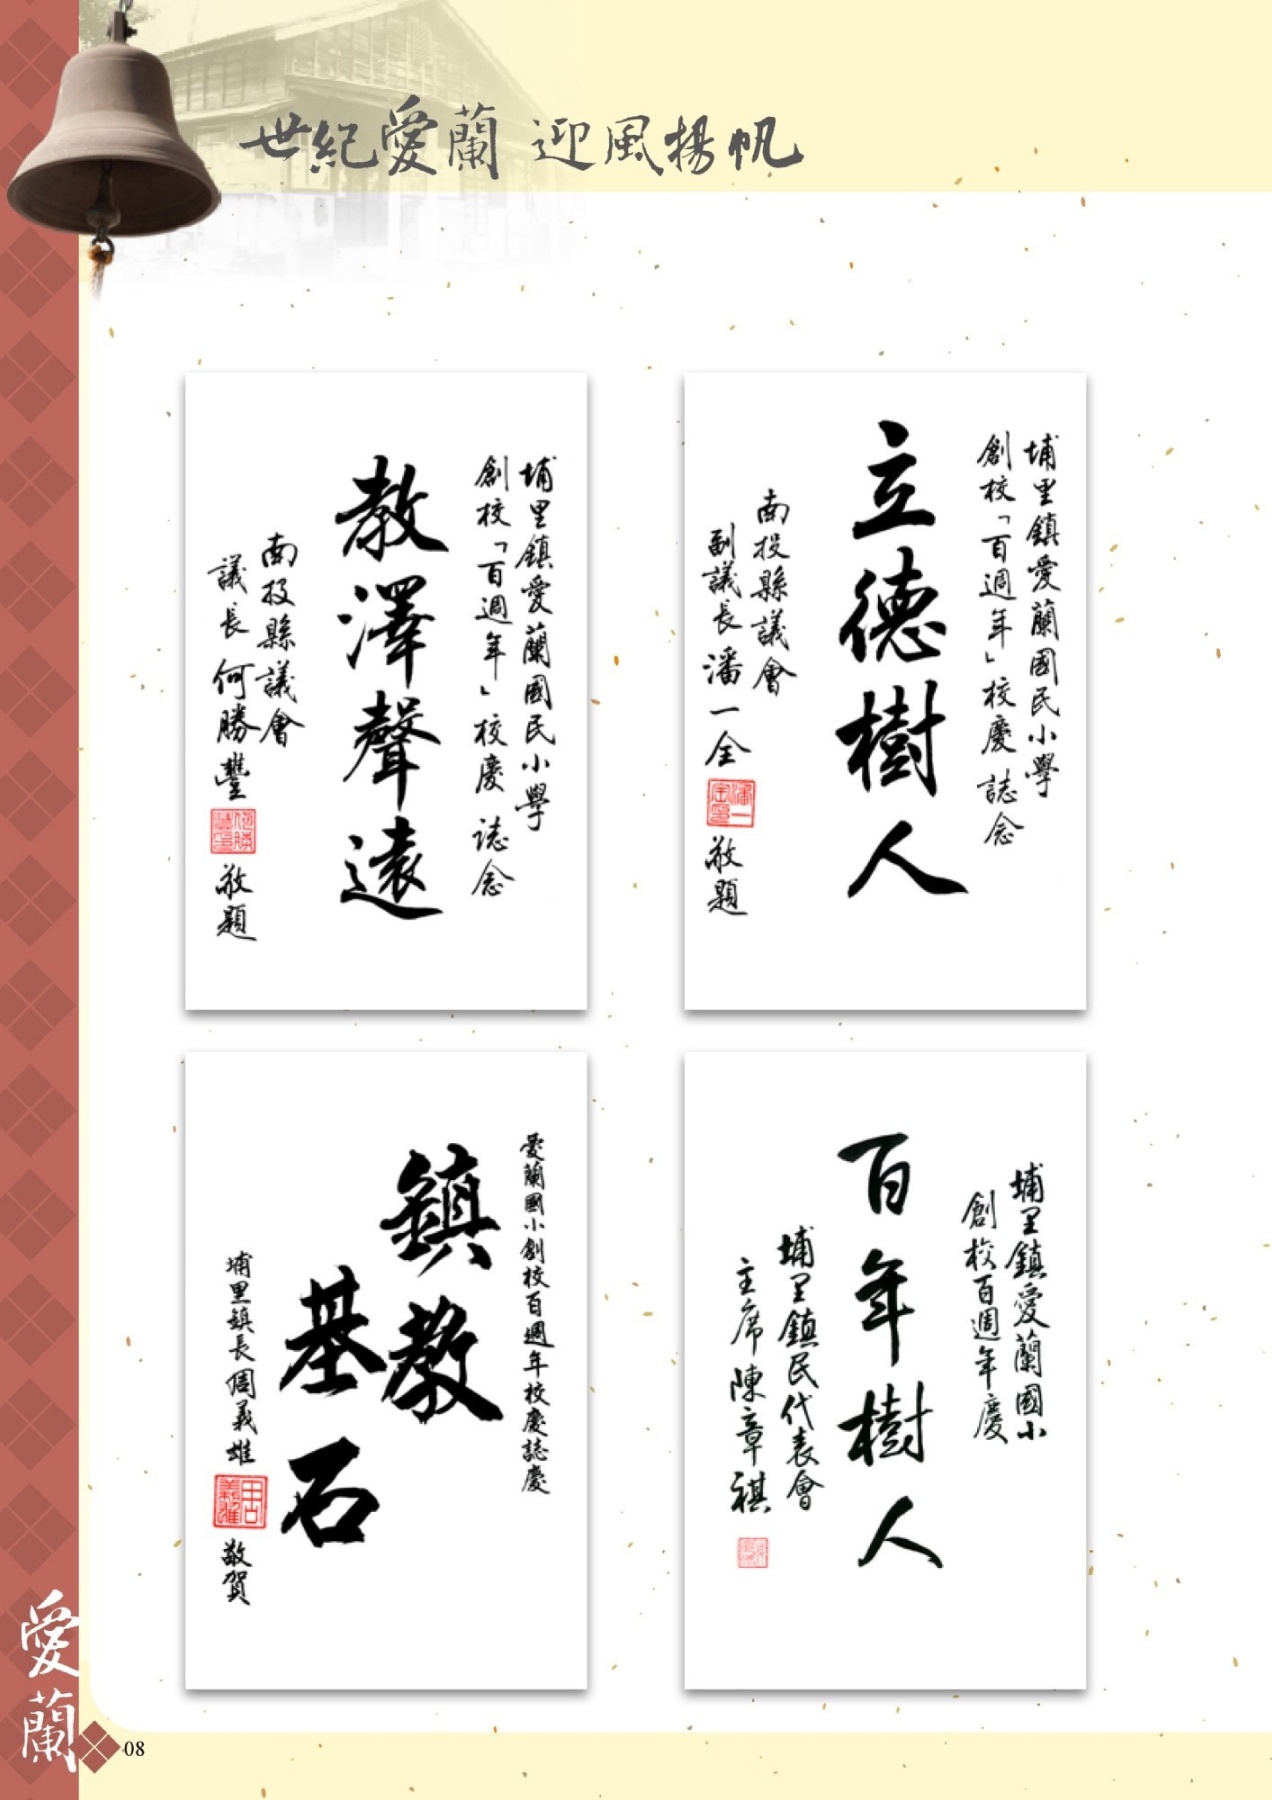 世紀愛蘭 迎風揚帆
埔里鎮愛蘭國民小學
創校「百週年」校慶 誌念
教澤聲遠
南投縣議會
議長 何勝豐
敬題
埔里鎮愛蘭國民小學
創校「百週年」校慶 誌念
立德樹人
南投縣議會
副議長 潘一全
潘一全印
敬題
愛蘭國小創校百週年校慶誌慶
鎮教
基石
埔里鎮長周義雄
周義雄
敬賀
埔里鎮愛蘭國小
創校百週年慶
百年樹人
埔里鎮民代表會
主席 陳章祺
愛蘭
08